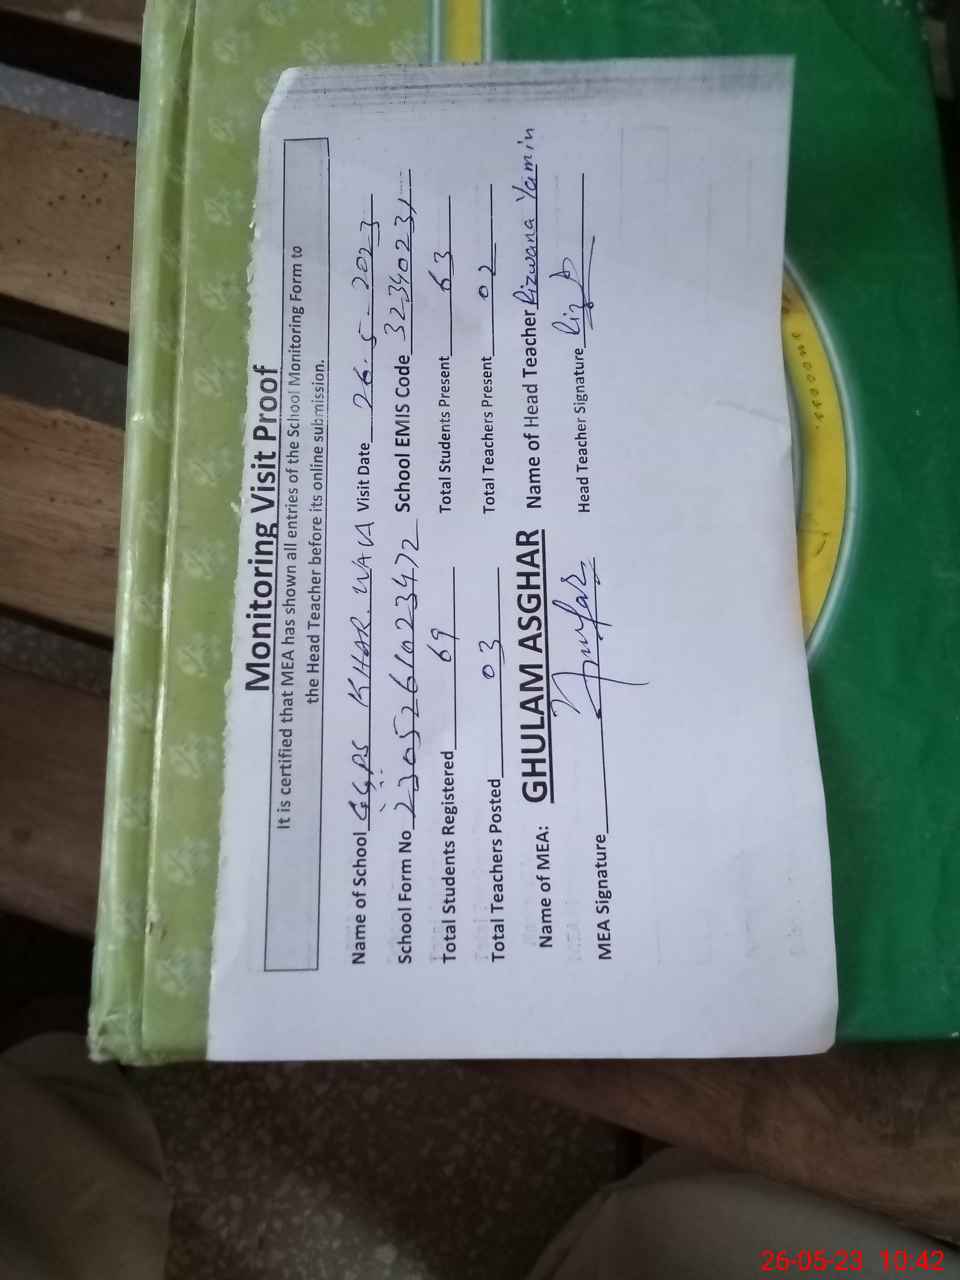 Monitoring Visit Proof
It is certified that MEA has shown all entries of the School Monitoring Form to
the Head Teacher before its online submission.
Name of School GGPS KHAR.WAL Visit Date 26.5-2023
School Form No 2305266023472 School EMIS Code 32340231
Total Students Registered 69 Total Students Present 63
Total Teachers Posted 03 Total Teachers Present 02
Name of MEA: GHULAM ASGHAR Name of Head Teacher Rizwana Yamin
MEA Signature Head Teacher Signature
26-05-23 10:42